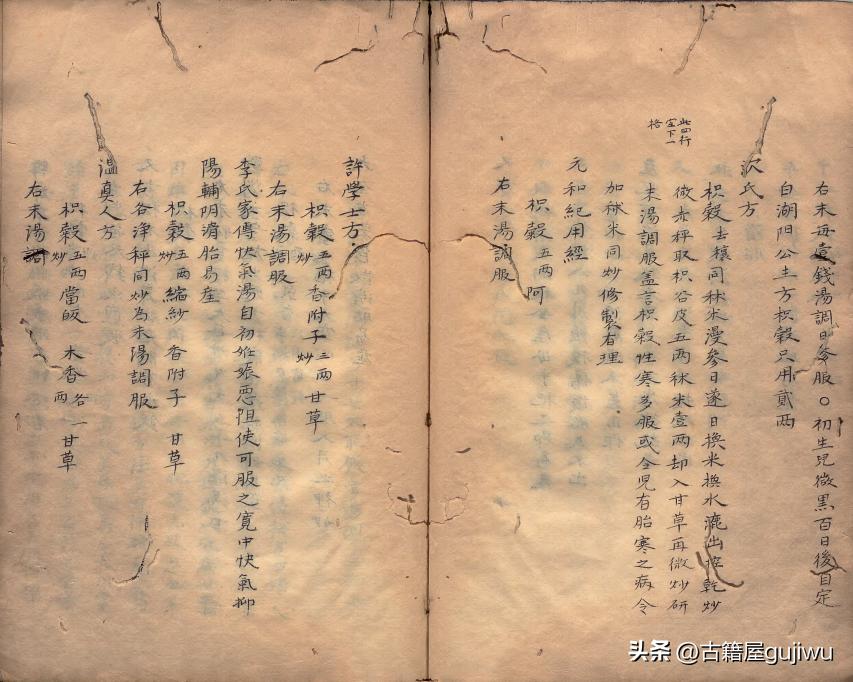 右末每壹錢湯調日參服〇初生兒微黑百日後自定
白湖陽公主方枳殼只用貳兩
沈氏方
枳殼去穰同秫米漫參日逐日換米換水漉出控乾炒
微赤秤取枳谷皮五兩秫米壹兩却入甘草再微炒研
末湯調服蓋言枳殼性寒多服或令兒有胎寒之病令
加秫米同炒修製有理
此四行
空下一
格
元和紀用經
枳殼五兩阿
右末湯調服
許學士方
枳殼五兩炒香附子三兩炒甘草
右末湯調服
李氏家傳快氣湯自初妊娠惡阻使可服之寬中快氣抑
陽輔阴滑胎易產
枳殼五兩炒縮紗香附子甘草
右各淨秤同炒為末湯調服
溫真人方
枳殼五兩炒當皈木香各一兩甘草
右末湯調
头条 @古籍屋gujiwu